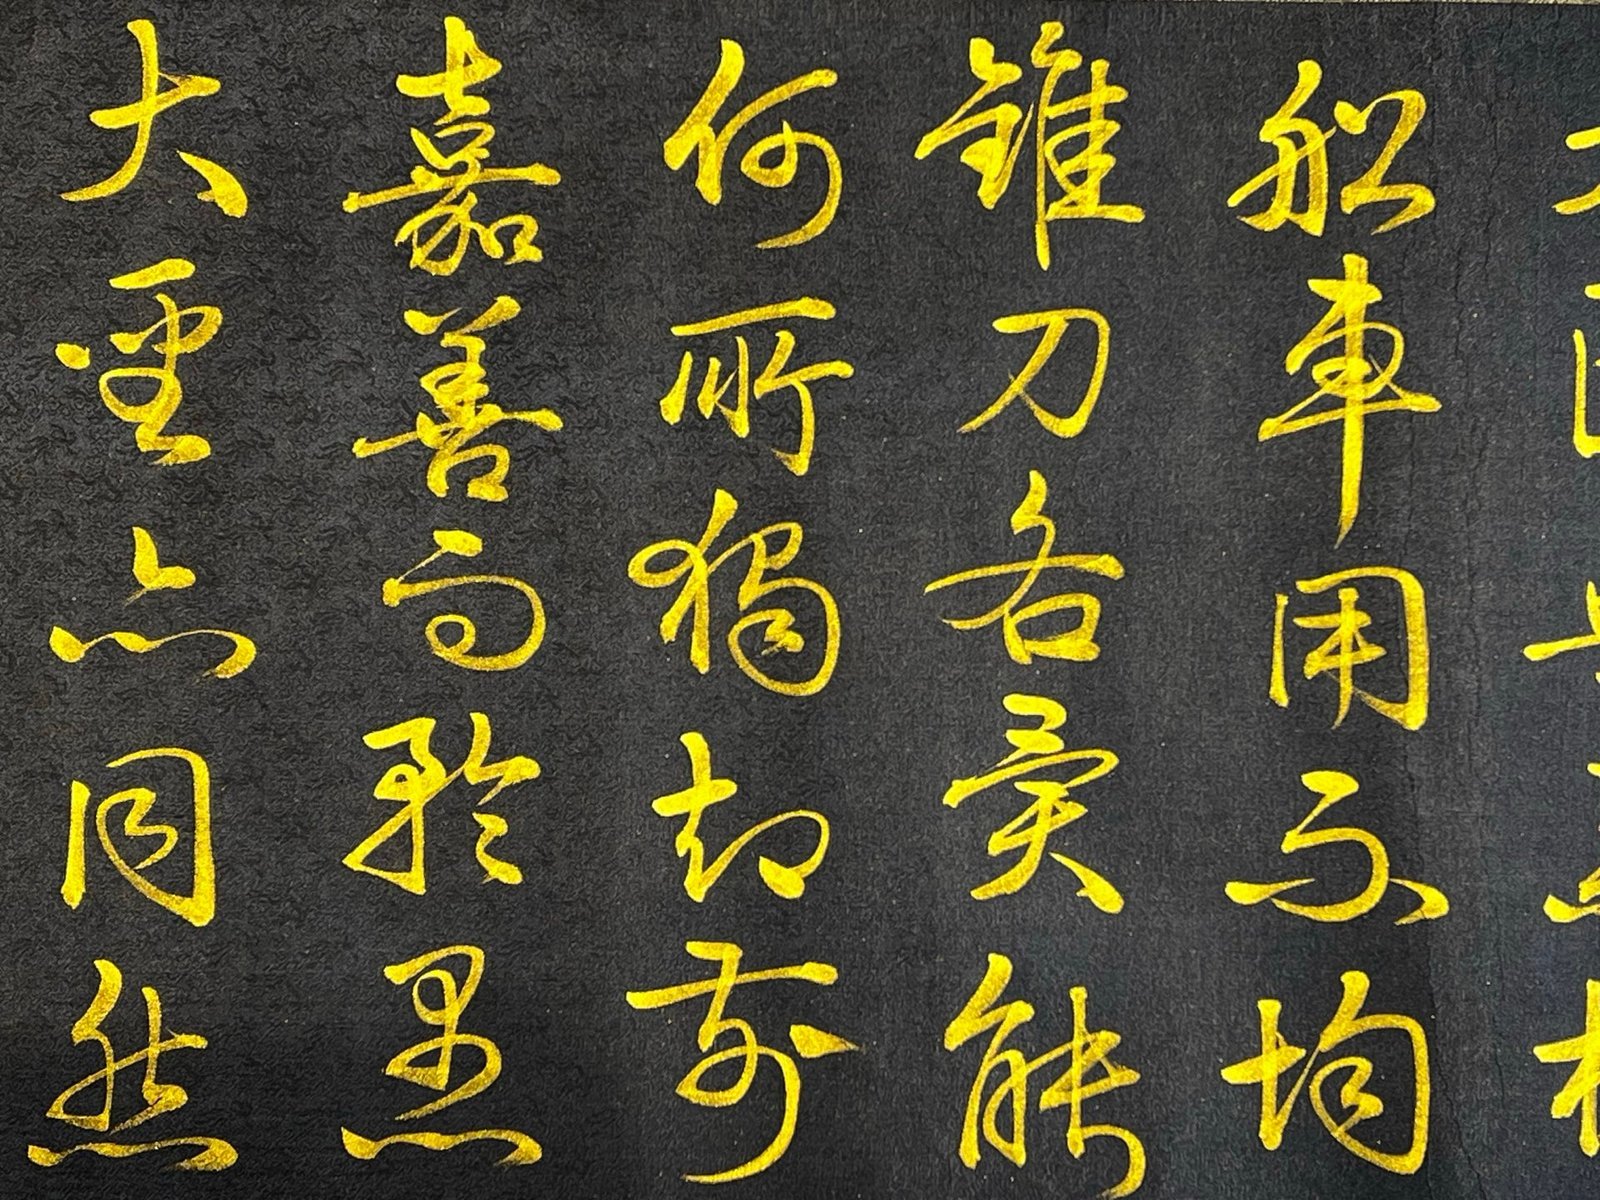 船車用不均
錐刀各異能
何所獨卻前
嘉善而矜愚
大聖亦同然